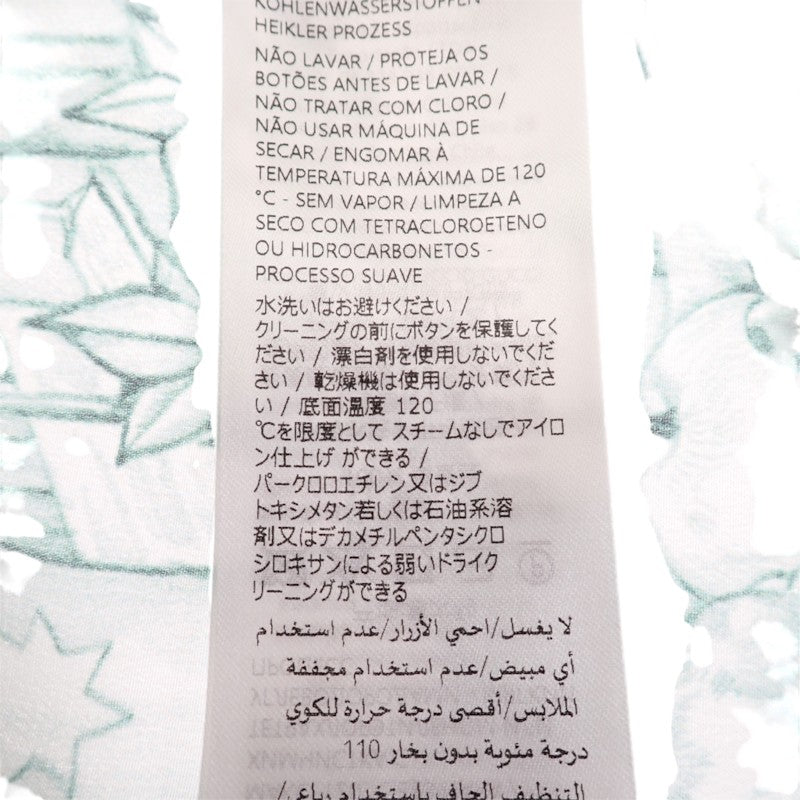 KOHLENWASSERSTOFFEN
HEIKLER PROZESS
NÃO LAVAR / PROTEJA OS
BOTÕES ANTES DE LAVAR /
NÃO TRATAR COM CLORO /
NÃO USAR MÁQUINA DE
SECAR / ENGOMAR À
TEMPERATURA MÁXIMA DE 120
°C - SEM VAPOR / LIMPEZA A
SECO COM TETRACLOROETENO
OU HIDROCARBONETOS -
PROCESSO SUAVE
水洗いはお避けください /
クリーニングの前にボタンを保護してく
ださい / 漂白剤を使用しないでくだ
さい / 乾燥機は使用しないでくださ
い / 底面温度 120
℃を限度として スチームなしでアイロ
ン仕上げ ができる /
パークロロエチレン又はジブ
トキシメタン若しくは石油系溶
剤又はデカメチルペンタシクロ
シロキサンによる弱いドライク
リーニングができる
لا يغسل/احمي الأزرار/عدم استخدام
أي مبيض/عدم استخدام مجففة
الملابس/أقصى درجة حرارة للكوي
110 درجة مئوية بدون بخار
التنظيف الجاف باستخدام رباعي/